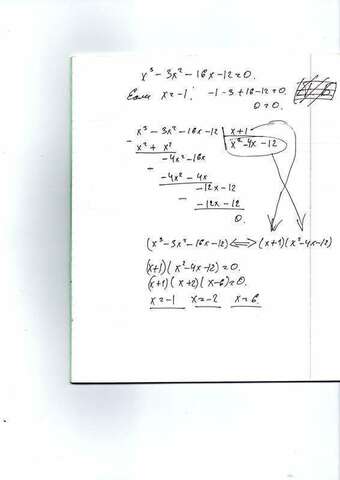 x³ - 3x² - 16x - 12 = 0.
Если x = -1; -1 - 3 + 16 - 12 = 0.
0 = 0.
x³ - 3x² - 16x - 12 | x + 1
x³ + x² | x² - 4x - 12
-4x² - 16x
-4x² - 4x
-12x - 12
-12x - 12
0.
(x³ - 3x² - 16x - 12) ⟺ (x + 1)(x² - 4x - 12)
(x+1)(x² - 4x - 12) = 0.
(x+1)(x+2)(x-6) = 0.
x = -1 x = -2 x = 6.